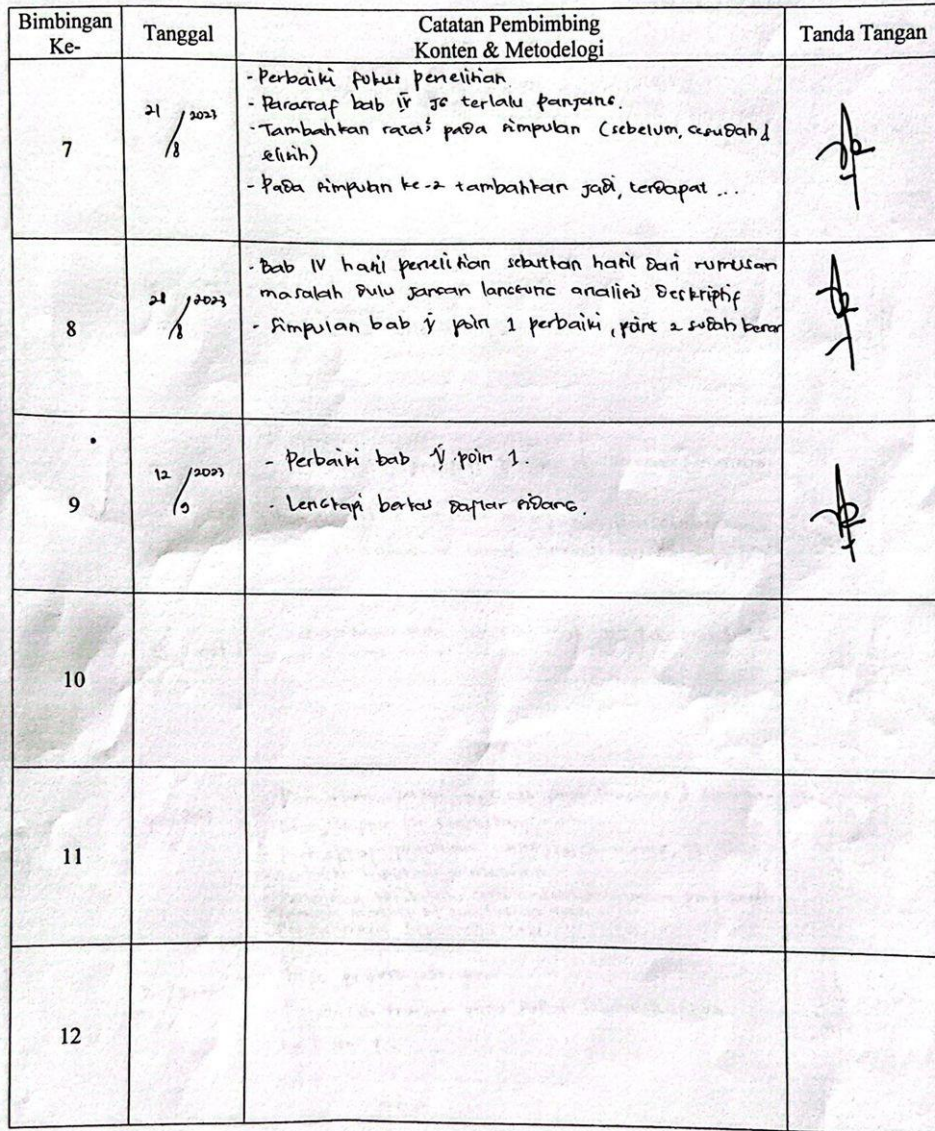 Bimbingan Ke-
Tanggal
Catatan Pembimbing
Konten & Metodelogi
Tanda Tangan
7
21/8 2023
- Perbaiki fokus penelitian
- Paragraf bab IV jg terlalu panjang.
- Tambahkan rata² pada simpulan (sebelum, sesudah &
selisih)
- Pada simpulan ke-2 tambahkan jadi, terdapat ...
8
28/8 2023
- Bab IV hasil penelitian sebutkan hasil dari rumusan
masalah dulu jangan langsung analisis deskriptif
- Simpulan bab V poin 1 perbaiki, point 2 sudah benar
9
12/9 2023
- Perbaiki bab V poin 1.
- Lengkapi berkas daftar sidang.
10
11
12